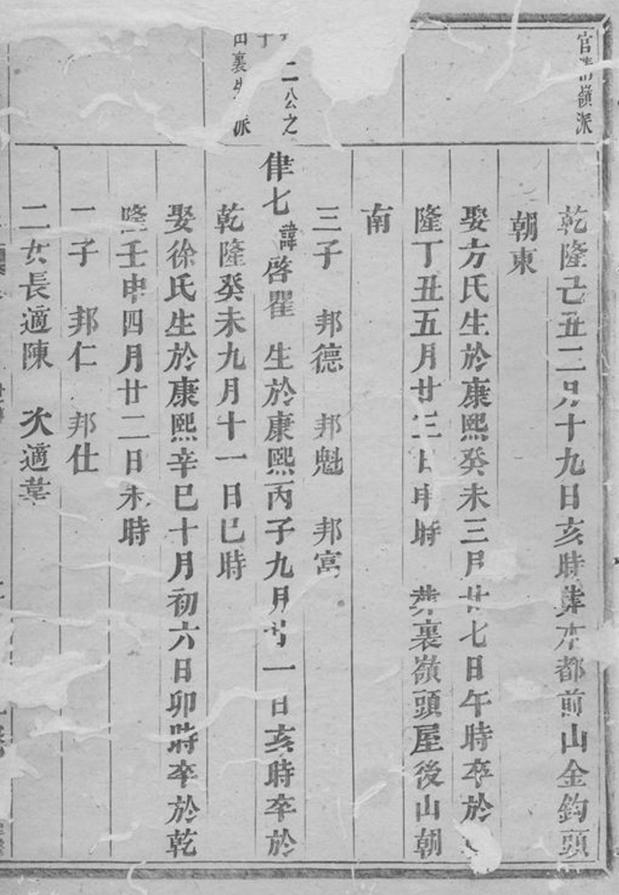 官清嶺派
乾隆己丑三月十九日亥時葬本都前山金鈎頭
朝東
娶方氏生於康熙癸未三月廿七日午時卒於
隆丁丑五月廿三日申時 葬裏嶺頭屋後山朝
南
三子 邦德 邦魁 邦富
二公之
田裏 派
律七 諱啓瞿 生於康熙丙子九月廿一日亥時卒於
乾隆癸未九月十一日巳時
娶徐氏生於康熙辛巳十月初六日卯時卒於乾
隆壬申四月廿二日未時
二子 邦仁 邦仕
二女長適陳 次適葉